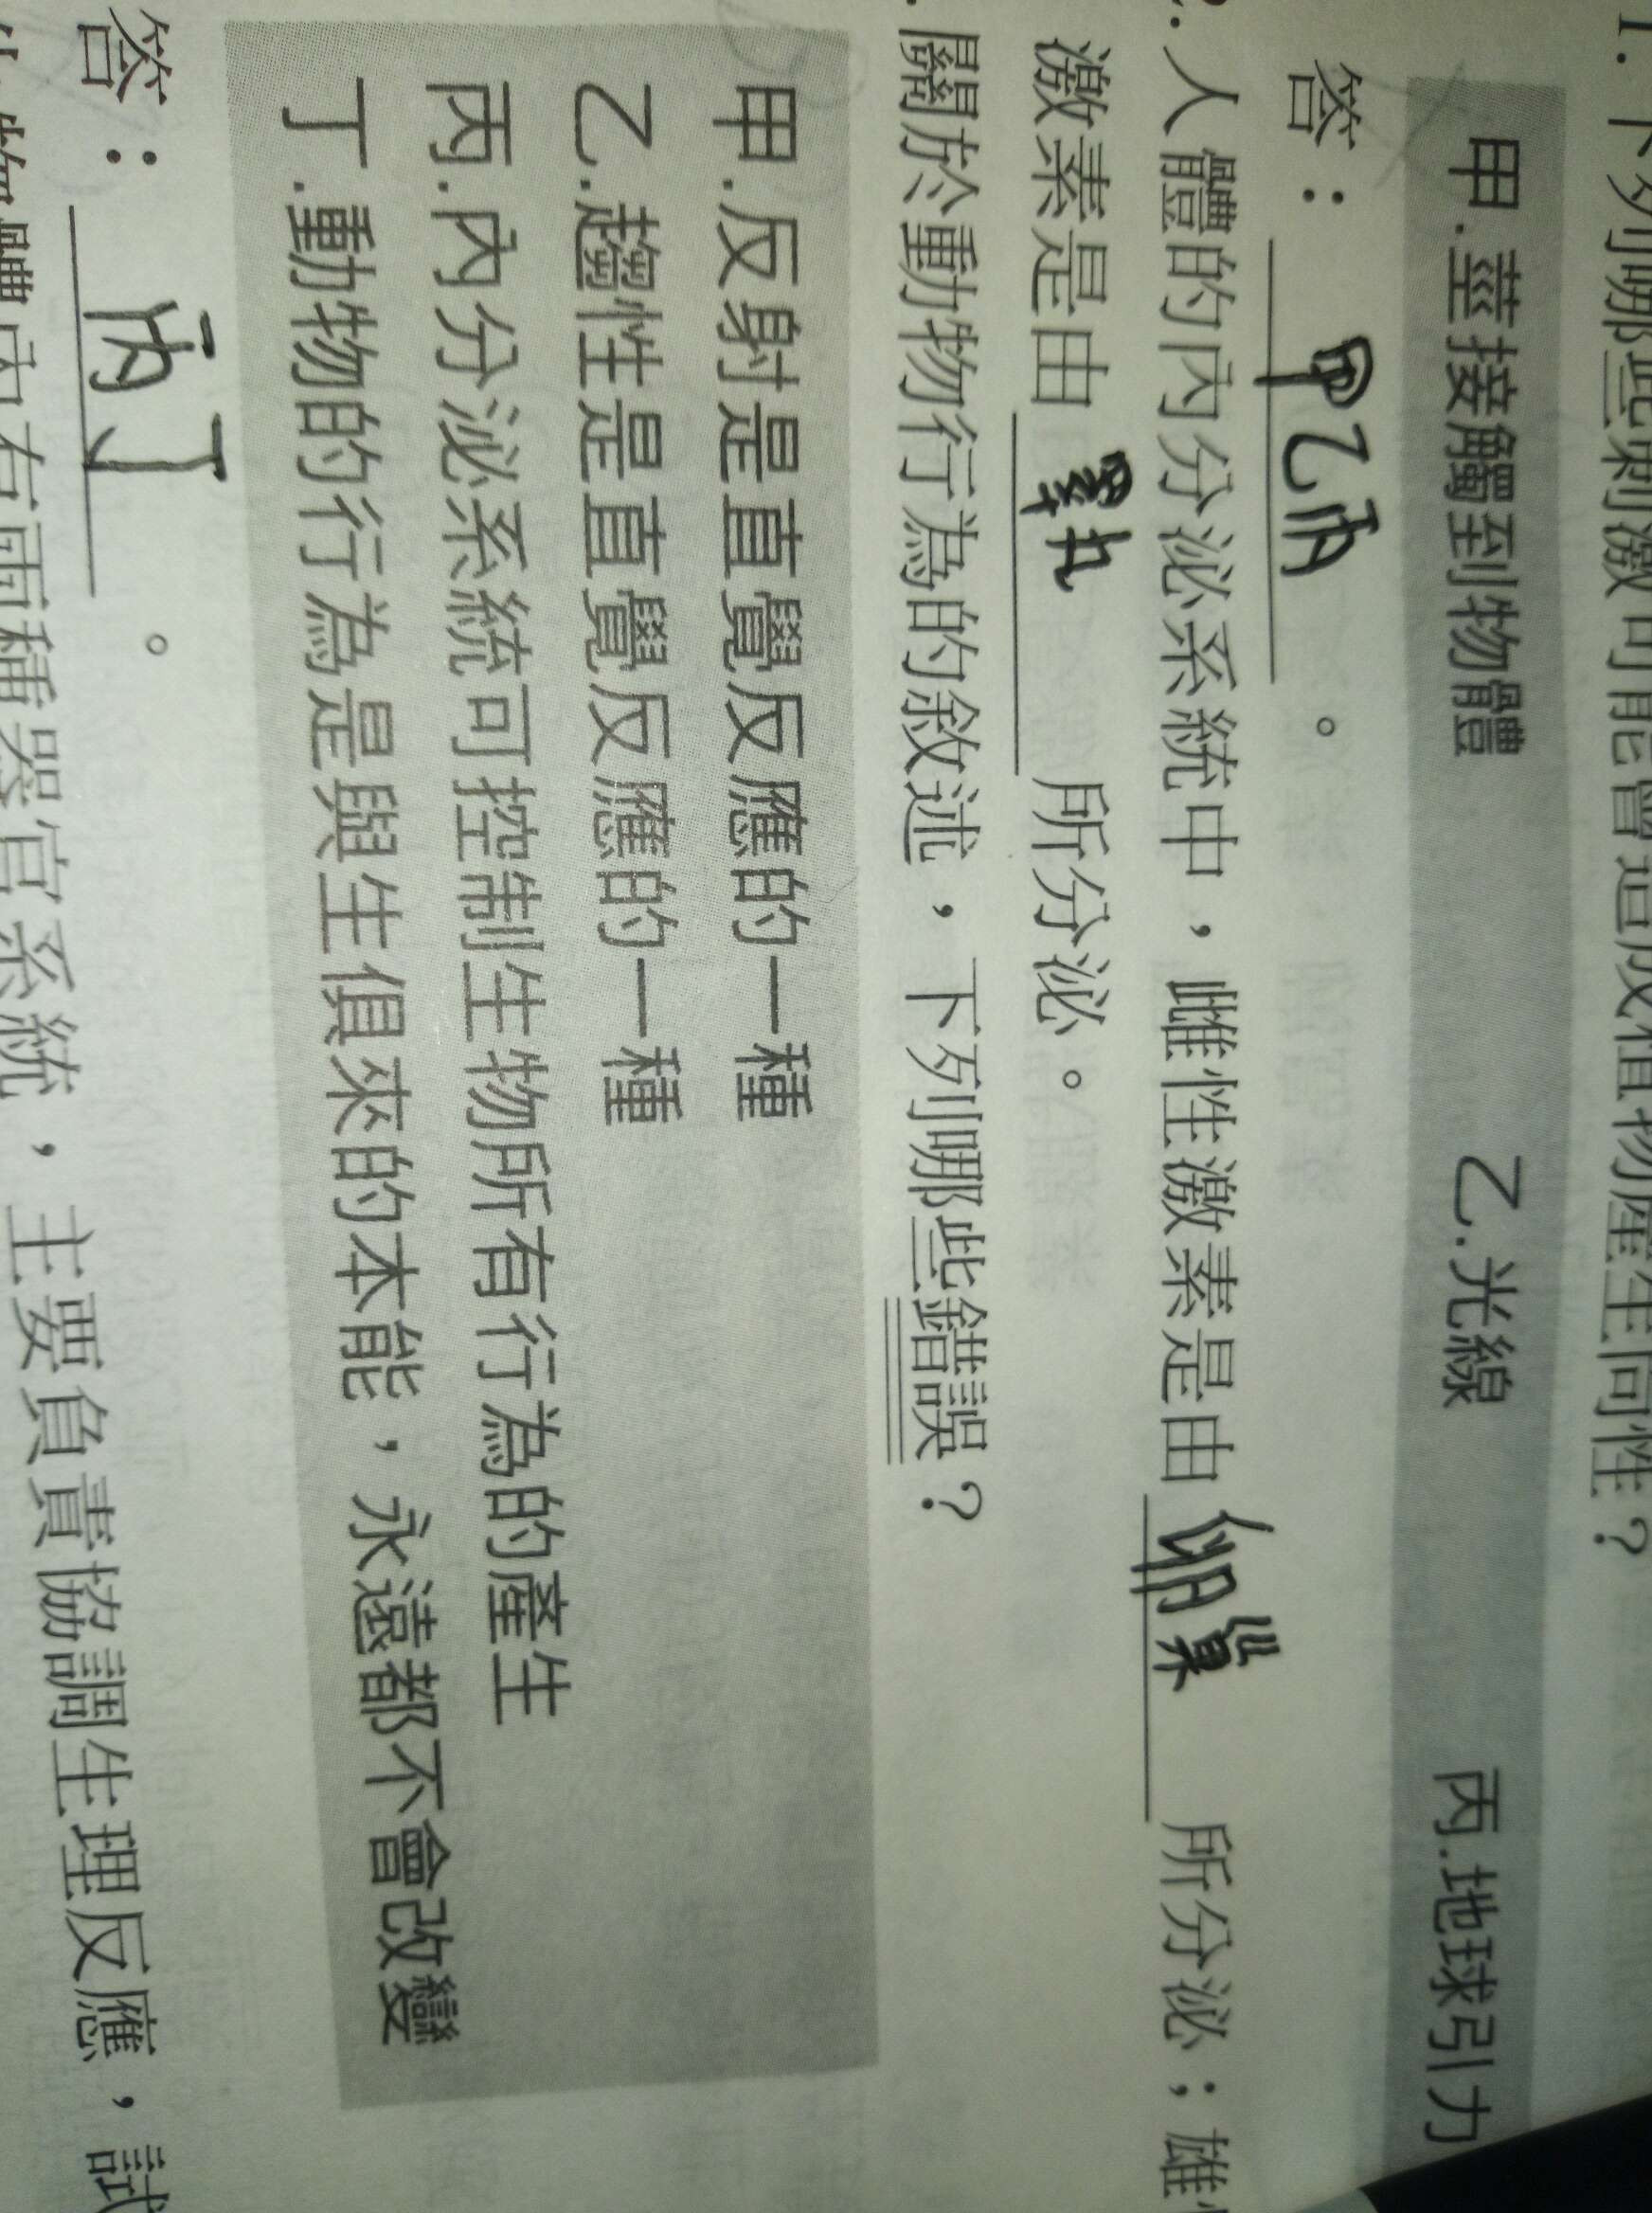 1.下列哪些刺激可能會造成植物產生向性？
甲.莖接觸到物體 乙.光線 丙.地球引力
答： 甲乙丙 。
2.人體的內分泌系統中，雌性激素是由 卵巢 所分泌；雄性
激素是由 睪丸 所分泌。
關於動物行為的敘述，下列哪些錯誤？
甲.反射是直覺反應的一種
乙.趨性是直覺反應的一種
丙.內分泌系統可控制生物所有行為的產生
丁.動物的行為是與生俱來的本能，永遠都不會改變
答： 丙丁 。
生物體內有兩種器官系統，主要負責協調生理反應，試